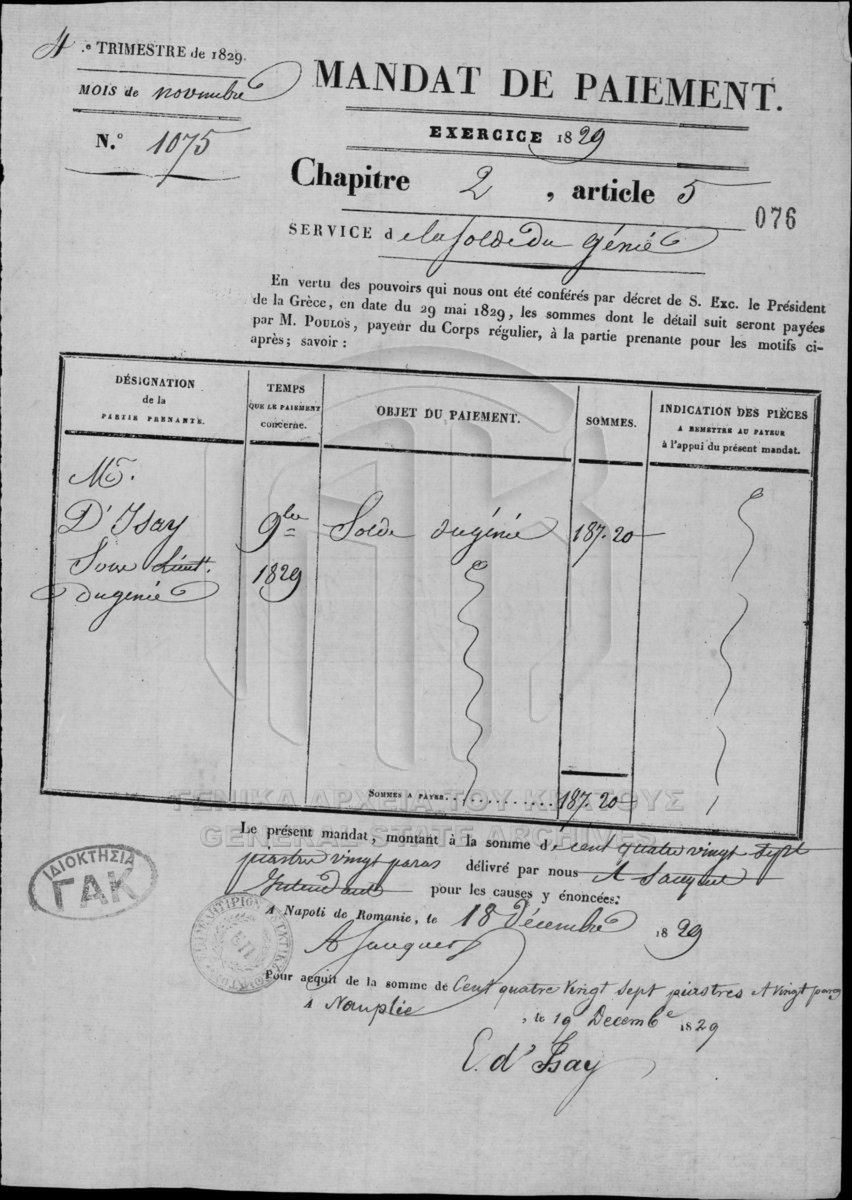 4.e TRIMESTRE de 1829.
MOIS de novembre
N.° 1075
MANDAT DE PAIEMENT.
EXERCICE 1829
Chapitre 2, article 5
076
SERVICE de la solde du génie
En vertu des pouvoirs qui nous ont été conférés par décret de S. Exc. le Président
de la Grèce, en date du 29 mai 1829, les sommes dont le détail suit seront payées
par M. POULOS, payeur du Corps régulier, à la partie prenante pour les motifs ci-
après; savoir :
DÉSIGNATION
de la
PARTIE PRENANTE.
TEMPS
QUE LE PAIEMENT
concerne.
OBJET DU PAIEMENT.
SOMMES.
INDICATION DES PIÈCES
A REMETTRE AU PAYEUR
à l'appui du présent mandat.
Mr.
D'Isay
Sous Lieut.
du génie
9bre
1829
Solde du génie
187.20
SOMMES A PAYER. 187.20
ΓΕΝΙΚΑ ΑΡΧΕΙΑ ΤΟΥ ΚΡΑΤΟΥΣ
GENERAL STATE ARCHIVES
Le présent mandat, montant à la somme de cent quatre vingt sept
piastres vingt paras délivré par nous
Intendant pour les causes y énoncées:
A Napoli de Romanie, le 18 Décembre 1829
ΙΔΙΟΚΤΗΣΙΑ
ΓΑΚ
Pour acquit de la somme de Cent quatre vingt sept piastres et vingt paras
A Nauplie, le 19 Decembe 1829
E. d'Isay